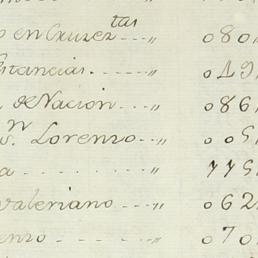 en Cruzes tas „ 080
stancias. „ 019
de Nacion „ 086
Sn Lorenzo „ 005
a 775
valeriano „ 062
enzo 070